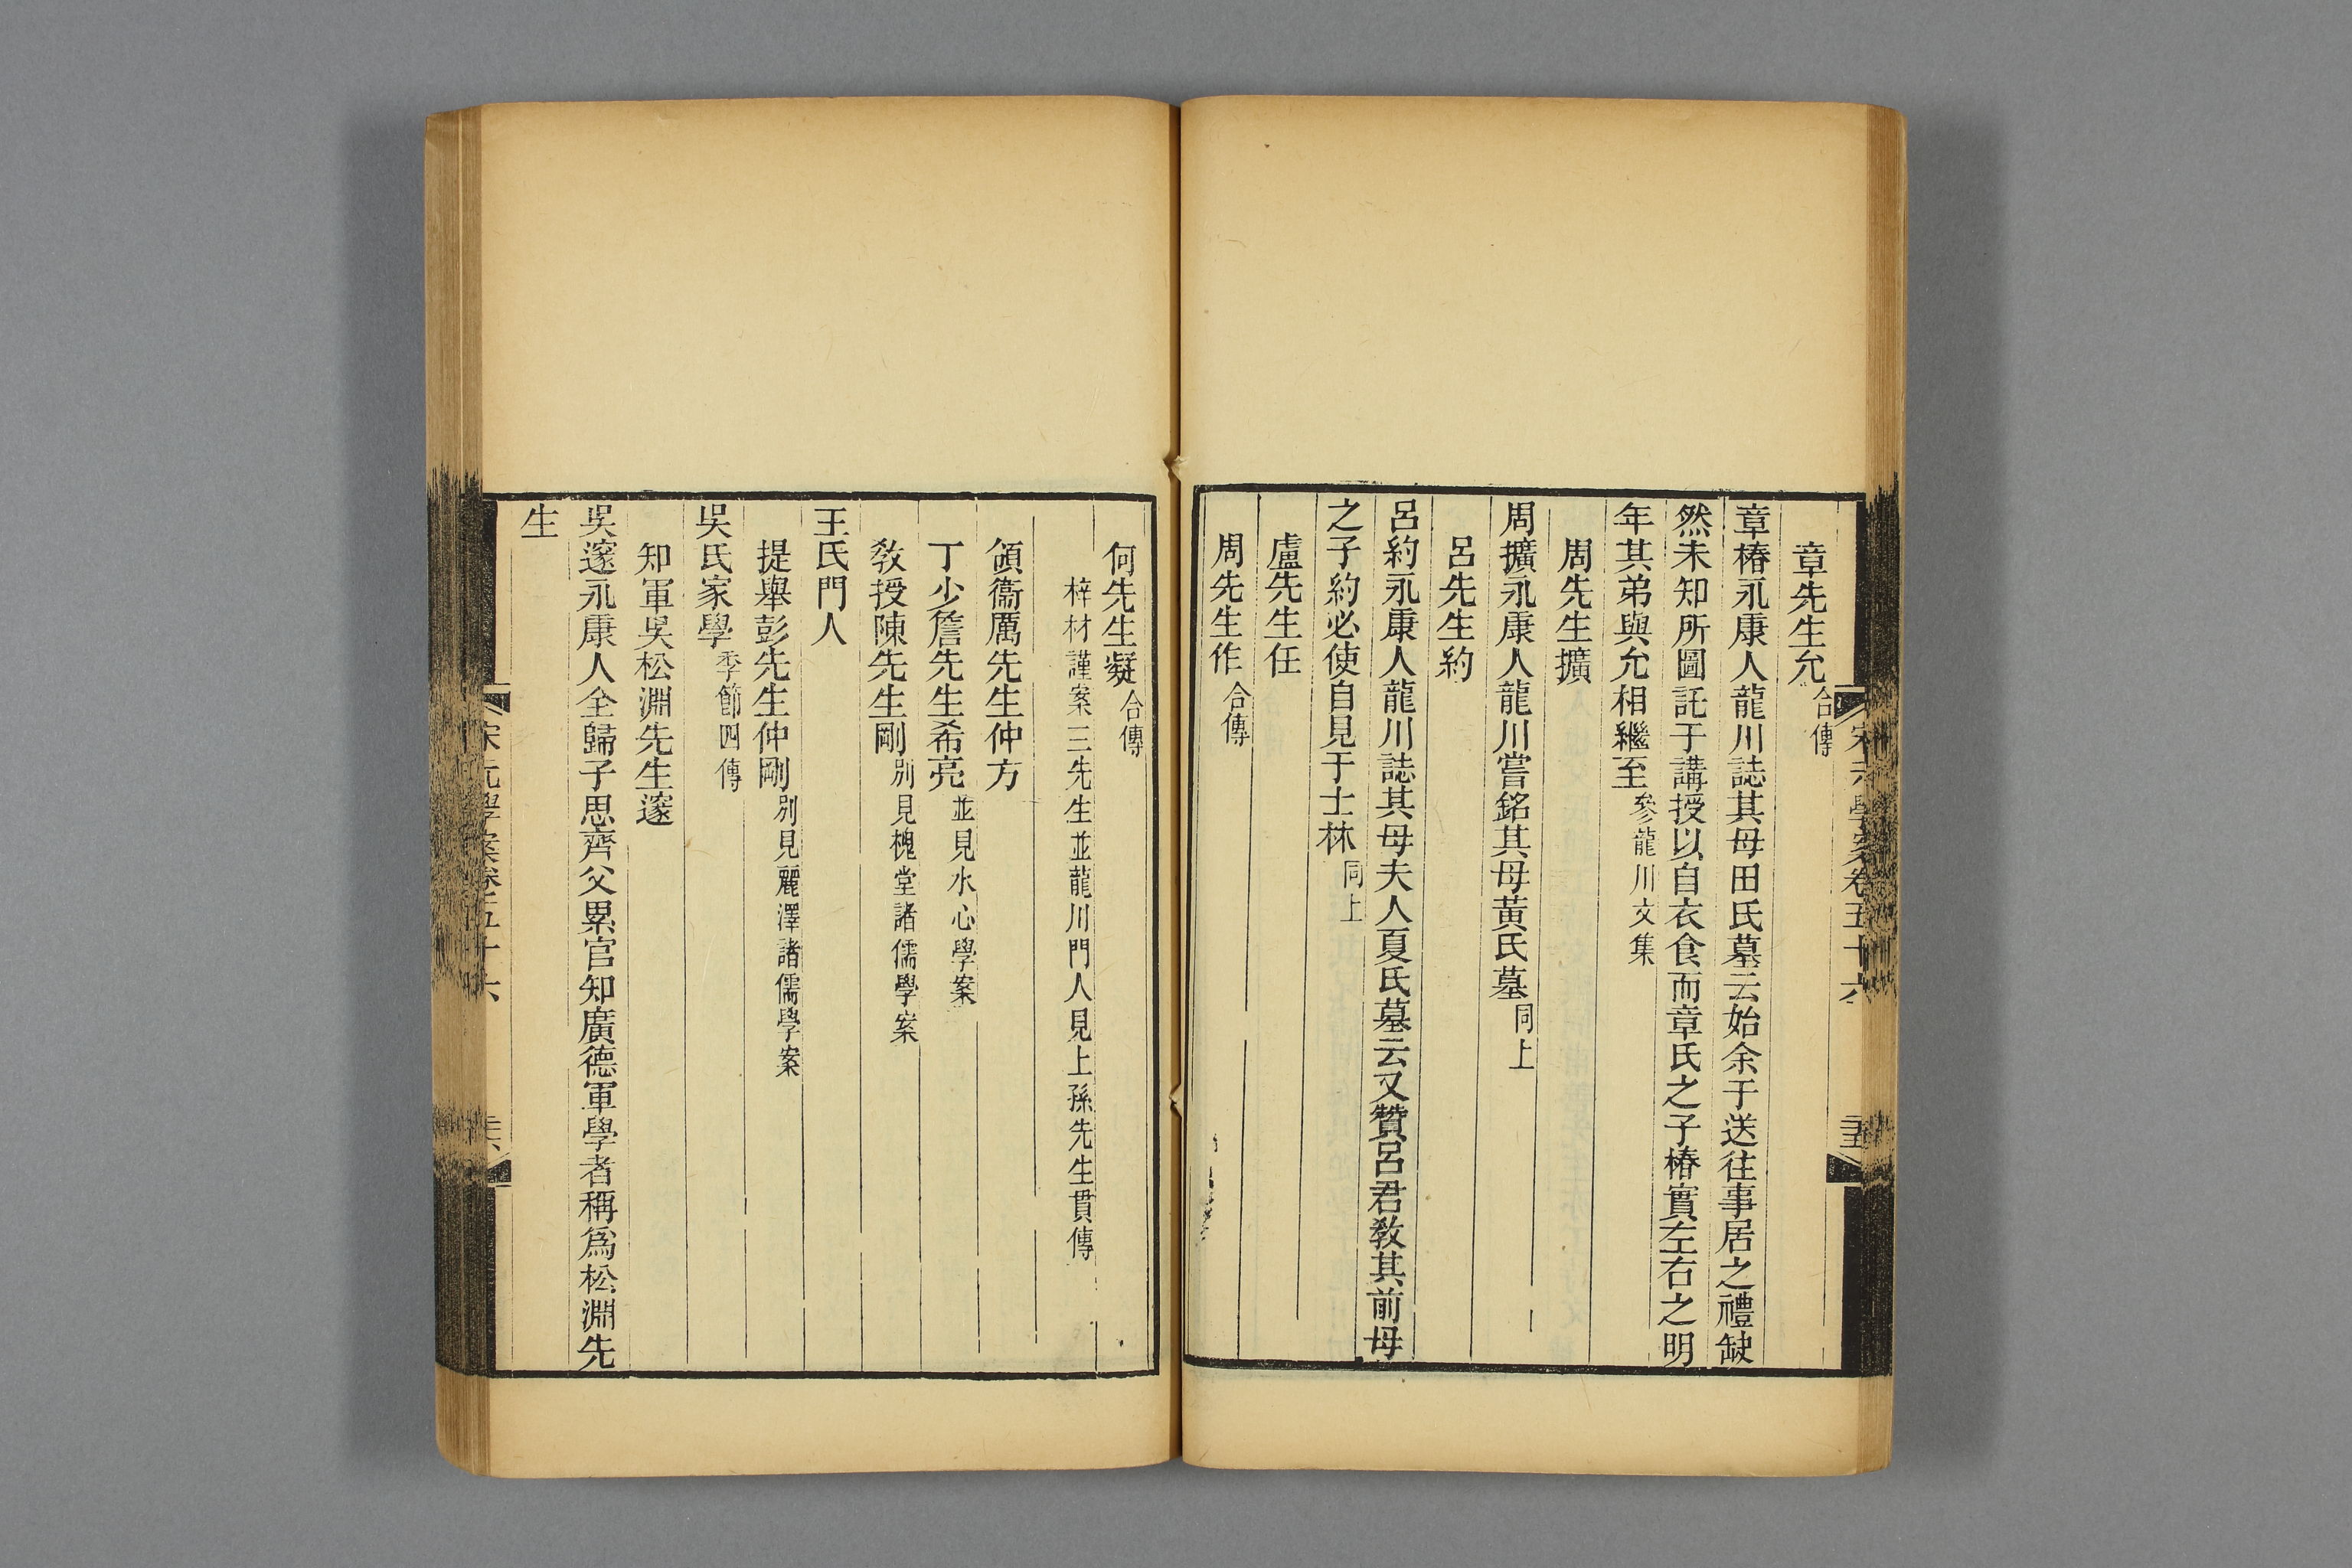 章先生允合傳
章椿永康人龍川誌其母田氏墓云始余于送往事居之禮缺
然未知所圖託于講授以自衣食而章氏之子椿實左右之明
年其弟與允相繼至參龍川文集
周先生擴
周擴永康人龍川嘗銘其母黃氏墓同上
呂先生約
呂約永康人龍川誌其母夫人夏氏墓云又贊呂君敎其前母
之子約必使自見于士林同上
盧先生任
周先生作合傳
宋元學案卷五十六
何先生凝合傳
梓材謹案三先生並龍川門人見上孫先生貫傳
領衞厲先生仲方
丁少詹先生希亮並見水心學案
敎授陳先生剛別見槐堂諸儒學案
王氏門人
提舉彭先生仲剛別見麗澤諸儒學案
吳氏家學季節四傳
知軍吳松淵先生邃
吳邃永康人全歸子思齊父累官知廣德軍學者稱爲松淵先
生
宋元學案卷五十六